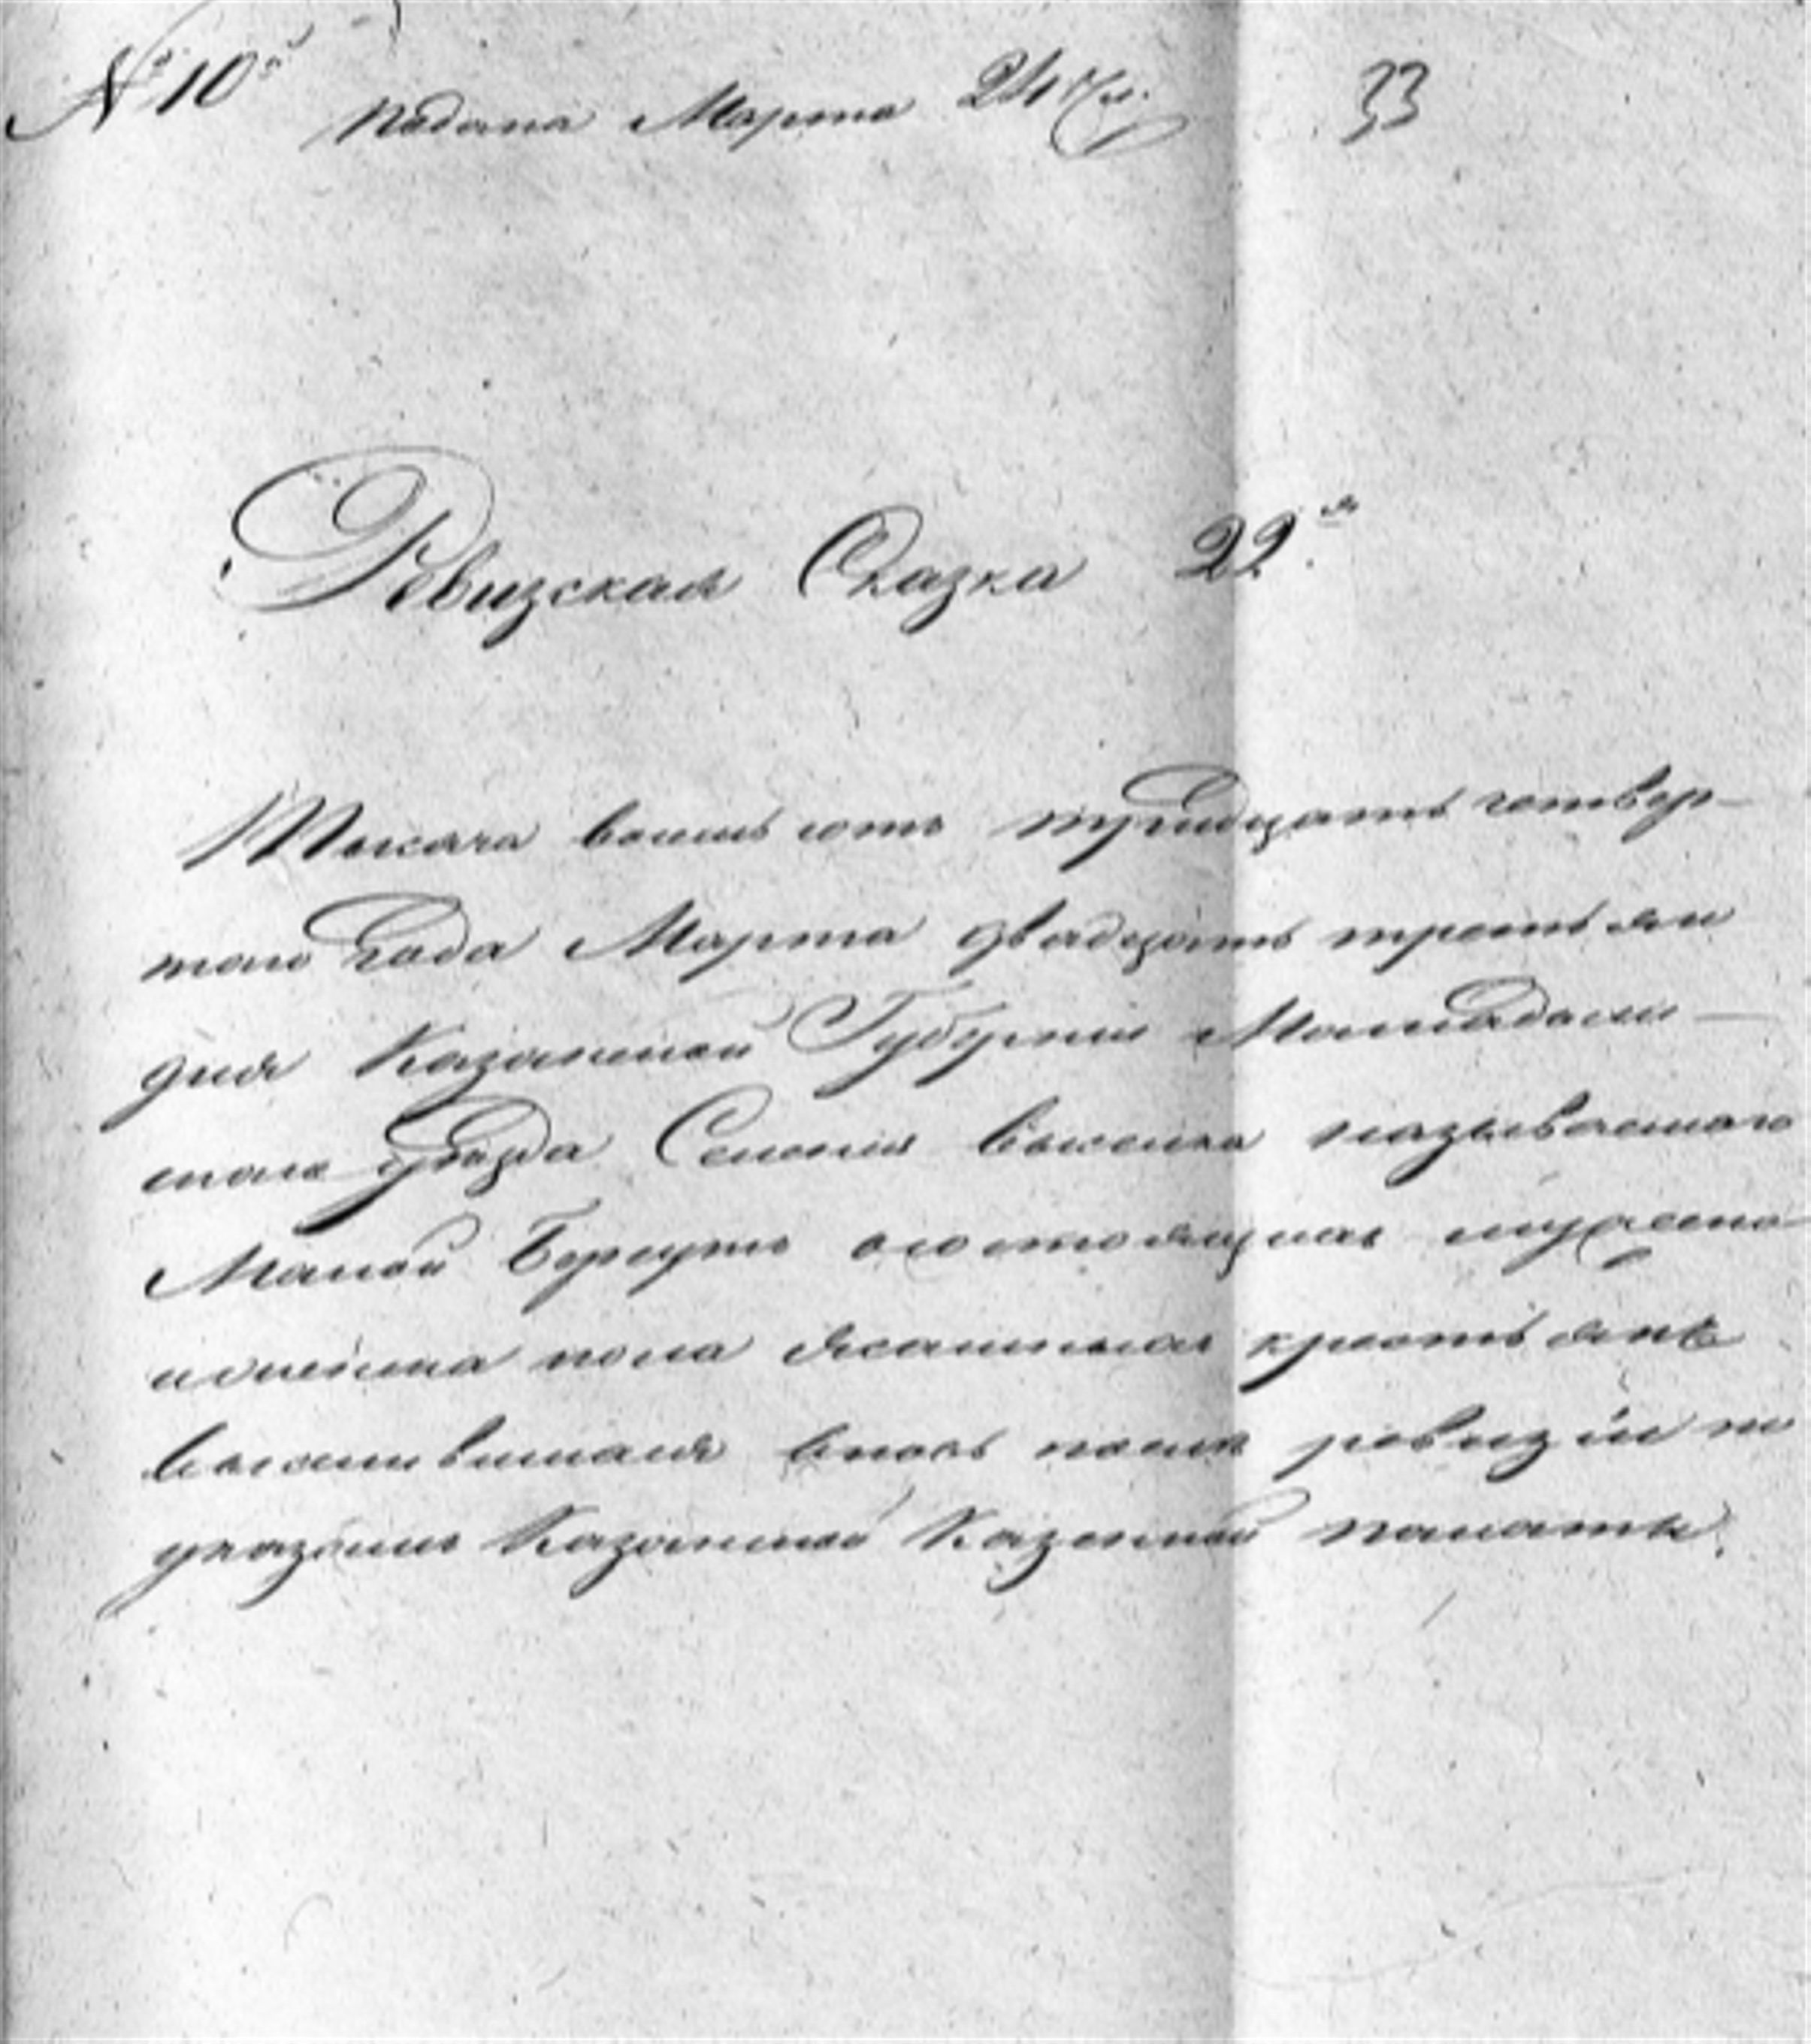 № 10й Подана Марта 24 Чи. 33
Ревизская Сказка 22я
Тысяча восемь сотъ тридцать четвер-
таго Года Марта двадцать третьяго
дня Казанской Губернии Мамадыш-
скаго уезда Селения называемаго
Малой о состоящихъ мужеска
и женска пола крестьянъ
вновь после ревизiи по
указанию Казанской Казенной палаты.